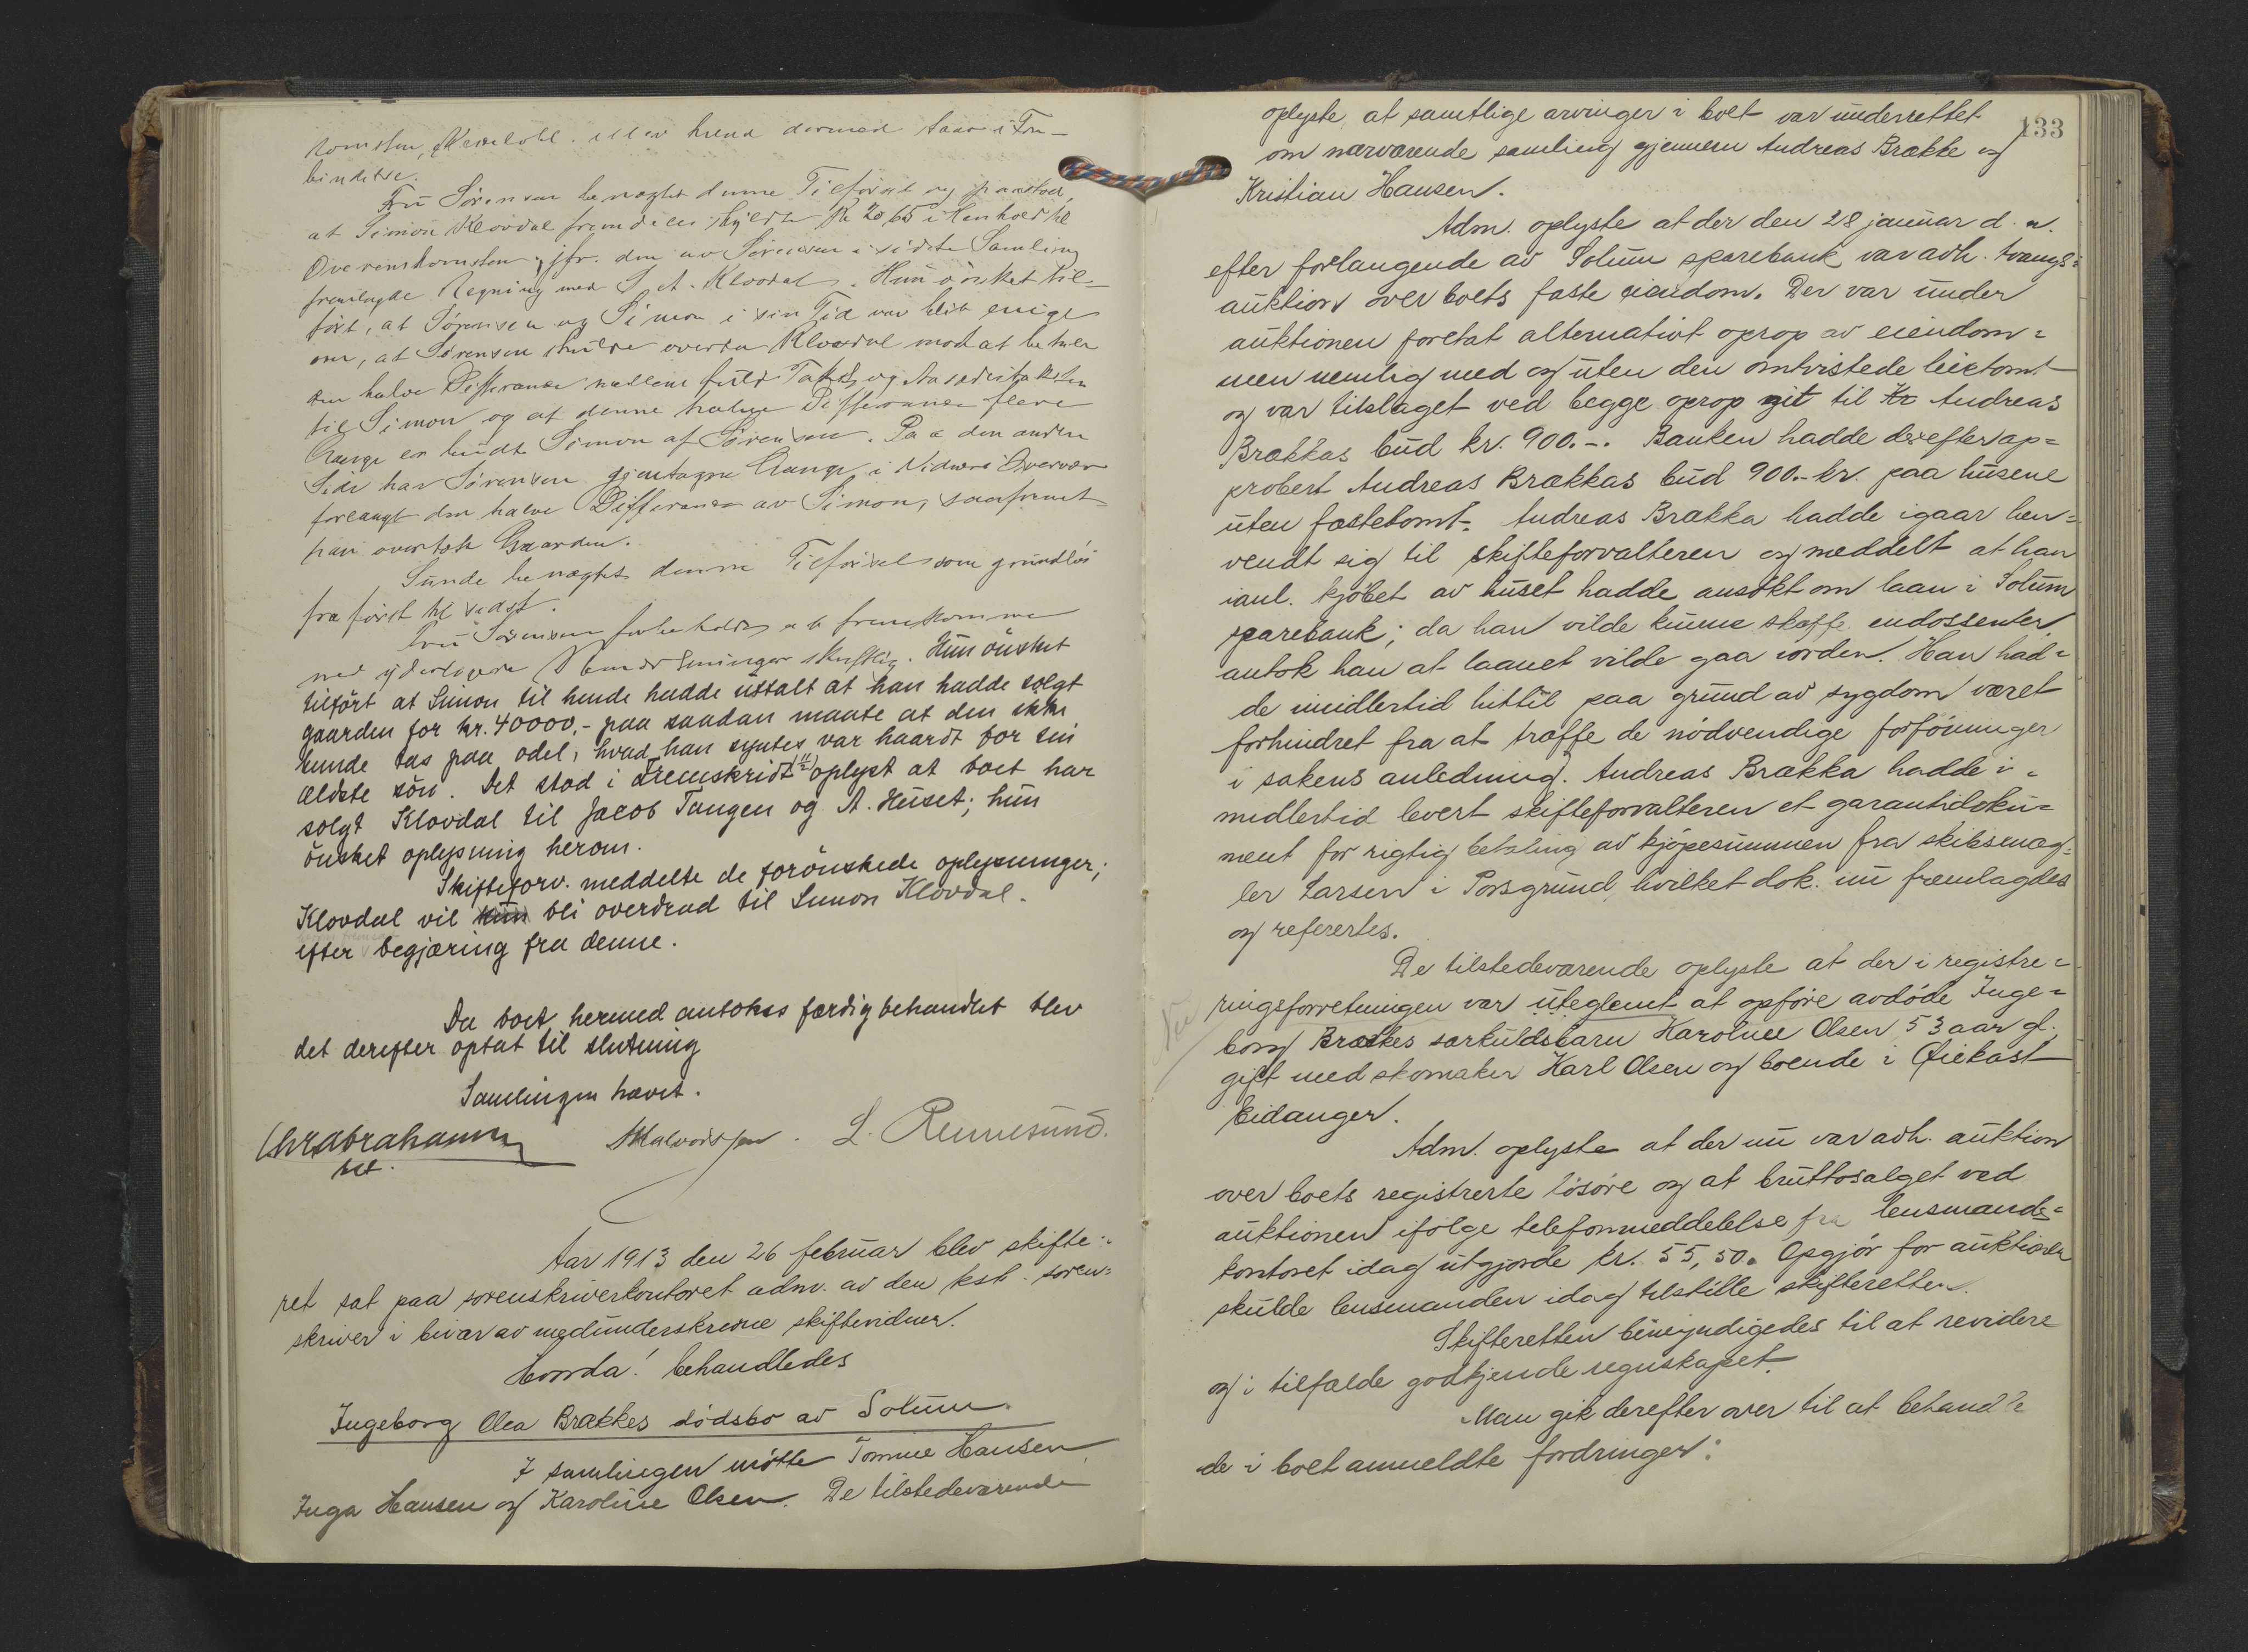 komsten, eller hvad dermed staar i For-
bindelse.
Fru Sörensen benægtet denne Tilförsel og paastod,
at Simon Klovdal fremdeles skyldte Kr 2065 i Henhold til
Overenskomsten, jfr. den av Sörensen i sidste Samling
fremlagde Regning med S. A. Klovdal. Hun önsket til-
fört, at Sörensen og Simon i sin Tid var blit enige
om, at Sörensen skulde overta Klovdal mod at betale
den halve Differance mellem fuld Takst og Aasædestaksten
til Simon og at denne halve Differance flere
Gange er budt Simon af Sörensen. Paa den anden
Side har Sörensen gjentagne Gange i Vidners Overvær
forlangt den halve Differance av Simon, saafremt
han overtok Gaarden.
Sunde benægtet denne Tilförsel som grundlös
fra först til sidst.
Fru Sörensen forbeholdt at fremkomme
med yderligere skriftlig. Hun önsket
tilfört at Simon til hende hadde uttalt at han hadde solgt
gaarden for kr. 40000,- paa saadan maate at den ikke
kunde tas paa odel, hvad han syntes var haardt for sin
ældste sön. Det stod i Fremskridt (11/2) oplyst at boet har
solgt Klovdal til Jacob Tangen og A. Huset; hun
önsket oplysning herom.
Skifteforv. meddelte de forönskede oplysninger;
Klovdal vil kun bli overdrad til Simon Klovdal.
efter begjæring fra denne.
Da boet hermed antokes færdigbehandlet blev
det derefter optat til slutning
Samlingen hævet.
Chr Abrahamsen
kst.
Halvorsen. L. Rennesund.
Aar 1913 den 26 februar blev skifte-
ret sat paa sorenskriverkontoret adm. av den kst. soren-
skriver i bivær av medunderskrevne skiftevidner.
Hvorda! behandledes
Ingeborg Olea Brækkes dödsbo av Solum.
I samlingen mötte Tomine Hansen
Inga Hansen og Karoline Olsen. De tilstedeværende
133
oplyste at samtlige arvinger i boet var underrettet
om nærværende samling gjennem Andreas Brække og
Kristian Hansen.
Adm. oplyste at der den 28 januar d. a.
efter forlangende av Solum sparebank var avh. tvangs-
auktion over boets faste eiendom. Der var under
auktionen foretat alternativt oprop av eiendom-
men nemlig med og uten den omtvistede leietomt
og var tilslaget ved begge oprop git til Kr Andreas
Brækkas bud kr. 900.-. Banken hadde derefter ap-
probert Andreas Brækkas bud 900.- kr. paa husene
uten fæstetomt. Andreas Brækka hadde igaar hen-
vendt sig til skifteforvalteren og meddelt at han
ianl. kjöbet av huset hadde ansökt om laan i Solum
sparebank; da han vilde kunne skaffe endossenter
antok han at laanet vilde gaa iorden. Han had-
de imidlertid hittil paa grund av sygdom været
forhindret fra at træffe de nödvendige forföininger
i sakens anledning. Andreas Brækka hadde i-
midlertid levert skifteforvalteren et garantidoku-
ment for rigtig betaling av kjöpesummen fra skibsmæg-
ler Larsen i Porsgrund, hvilket dok. nu fremlagdes
og referertes.
De tilstedeværende oplyste at der i registre-
ringsforretningen var uteglemt at opföre avdöde Inge-
borg Brækkes særkuldsbarn Karoline Olsen 53 aar gl.
gift med skomaker Karl Olsen og boende i Øiekast
Eidanger.
Adm. oplyste at der nu var avh. auktion
over boets registrerte lösöre og at bruttosalget ved
auktionen ifölge telefonmeddelelse fra lensmands-
kontoret idag utgjorde kr. 55,50. Opgjör for auktionen
skulde lensmanden idag tilstille skifteretten.
Skifteretten bemyndigedes til at revidere
og i tilfælde godkjende regnskapet.
Man gik derefter over til at behandle
de i boet anmeldte fordringer: